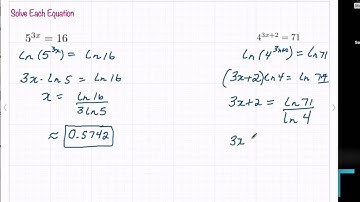 Solve Each Equation
5^{3x} = 16
ln(5^{3x}) = ln 16
3x · ln 5 = ln 16
x = ln 16 / 3 ln 5
≈ 0.5742
4^{3x+2} = 71
ln(4^{3x+2}) = ln 71
(3x+2) ln 4 = ln 71
3x+2 = ln 71 / ln 4
3x